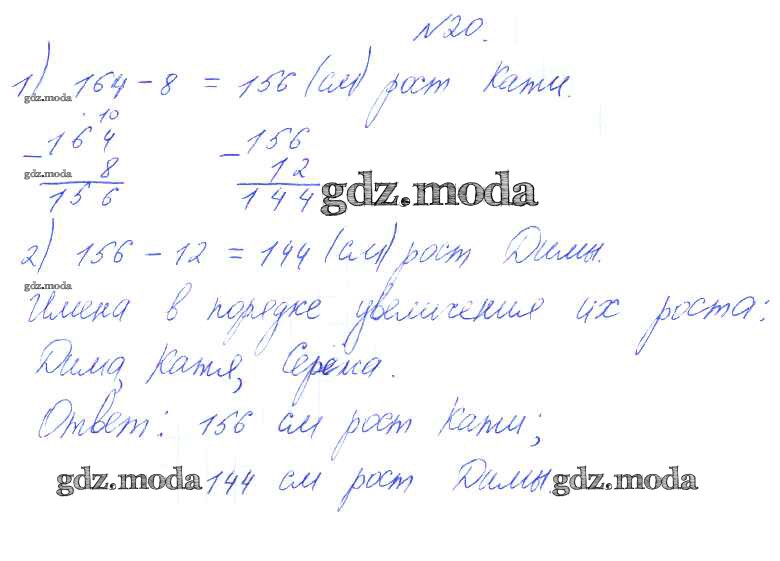 №20.
1) 164 - 8 = 156 (см) рост Кати.
gdz.moda
10
- 164 - 156
gdz.moda 8 12
156 144 gdz.moda
2) 156 - 12 = 144 (см) рост Димы.
gdz.moda
Имена в порядке увеличения их роста:
Дима, Катя, Серёжа.
Ответ: 156 см рост Кати;
gdz.moda 144 см рост Димы. gdz.moda